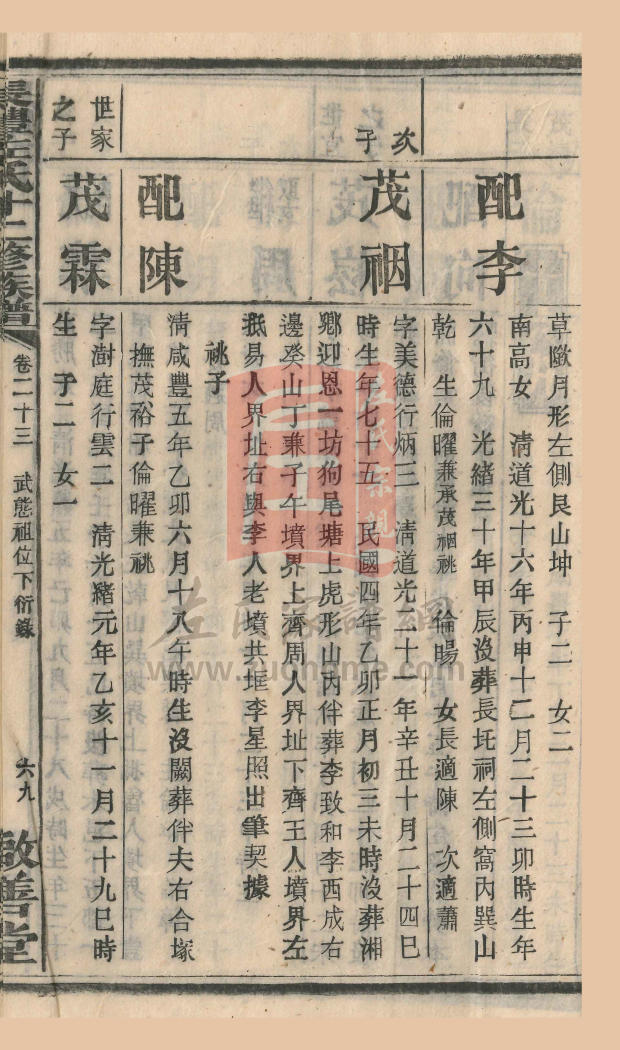 草墽月形左側艮山坤　子二　女二
配李
南高女　清道光十六年丙申十二月二十三卯時生年
六十九　光緒三十年甲辰沒葬長圫祠左側窩內巽山
乾　生倫曜兼承茂禋祧　倫暘　女長適陳　次適蕭
次子
茂禋
字美德行炳三　清道光二十一年辛丑十月二十四巳
時生年七十五　民國四年乙卯正月初三未時沒葬湘
鄉迎恩一坊狗尾塘上虎形山內伴葬李致和李西成右
邊癸山丁兼子午墳界上齊周人界址下齊王人墳界左
抵易人界址右與李人老墳共堆李星照出筆契據
祧子
配陳
清咸豐五年乙卯六月十八午時生沒闕葬伴夫右合塚
撫茂裕子倫曜兼祧
世家之子
茂霖
字澍庭行雲二　清光緒元年乙亥十一月二十九巳時
生　子二　女一
左氏十二修族譜
卷二十三　武態祖位下衍錄
六九
啟善堂
左氏宗親
左氏家譜網